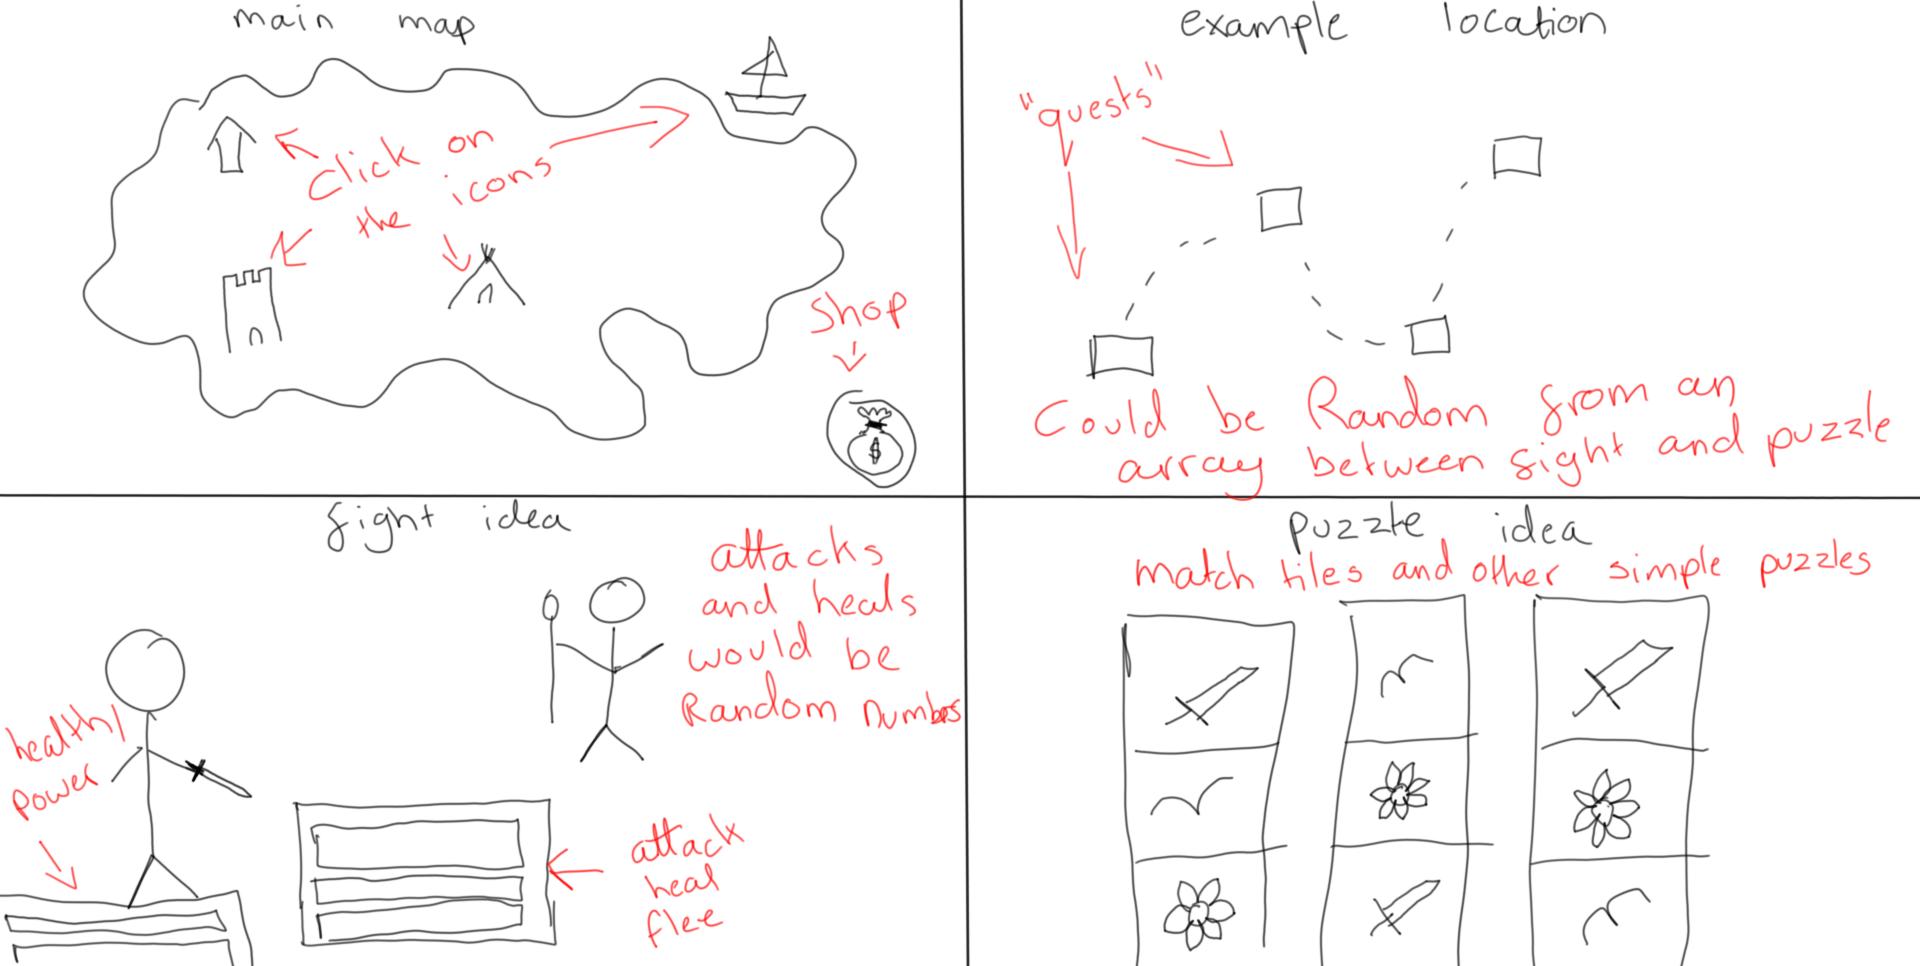 main map
Click on
the icons
Shop
$
example location
"quests"
Could be Random from an
array between fight and puzzle
fight idea
attacks
and heals
would be
Random numbers
health/
power
attack
heal
flee
puzzle idea
match tiles and other simple puzzles